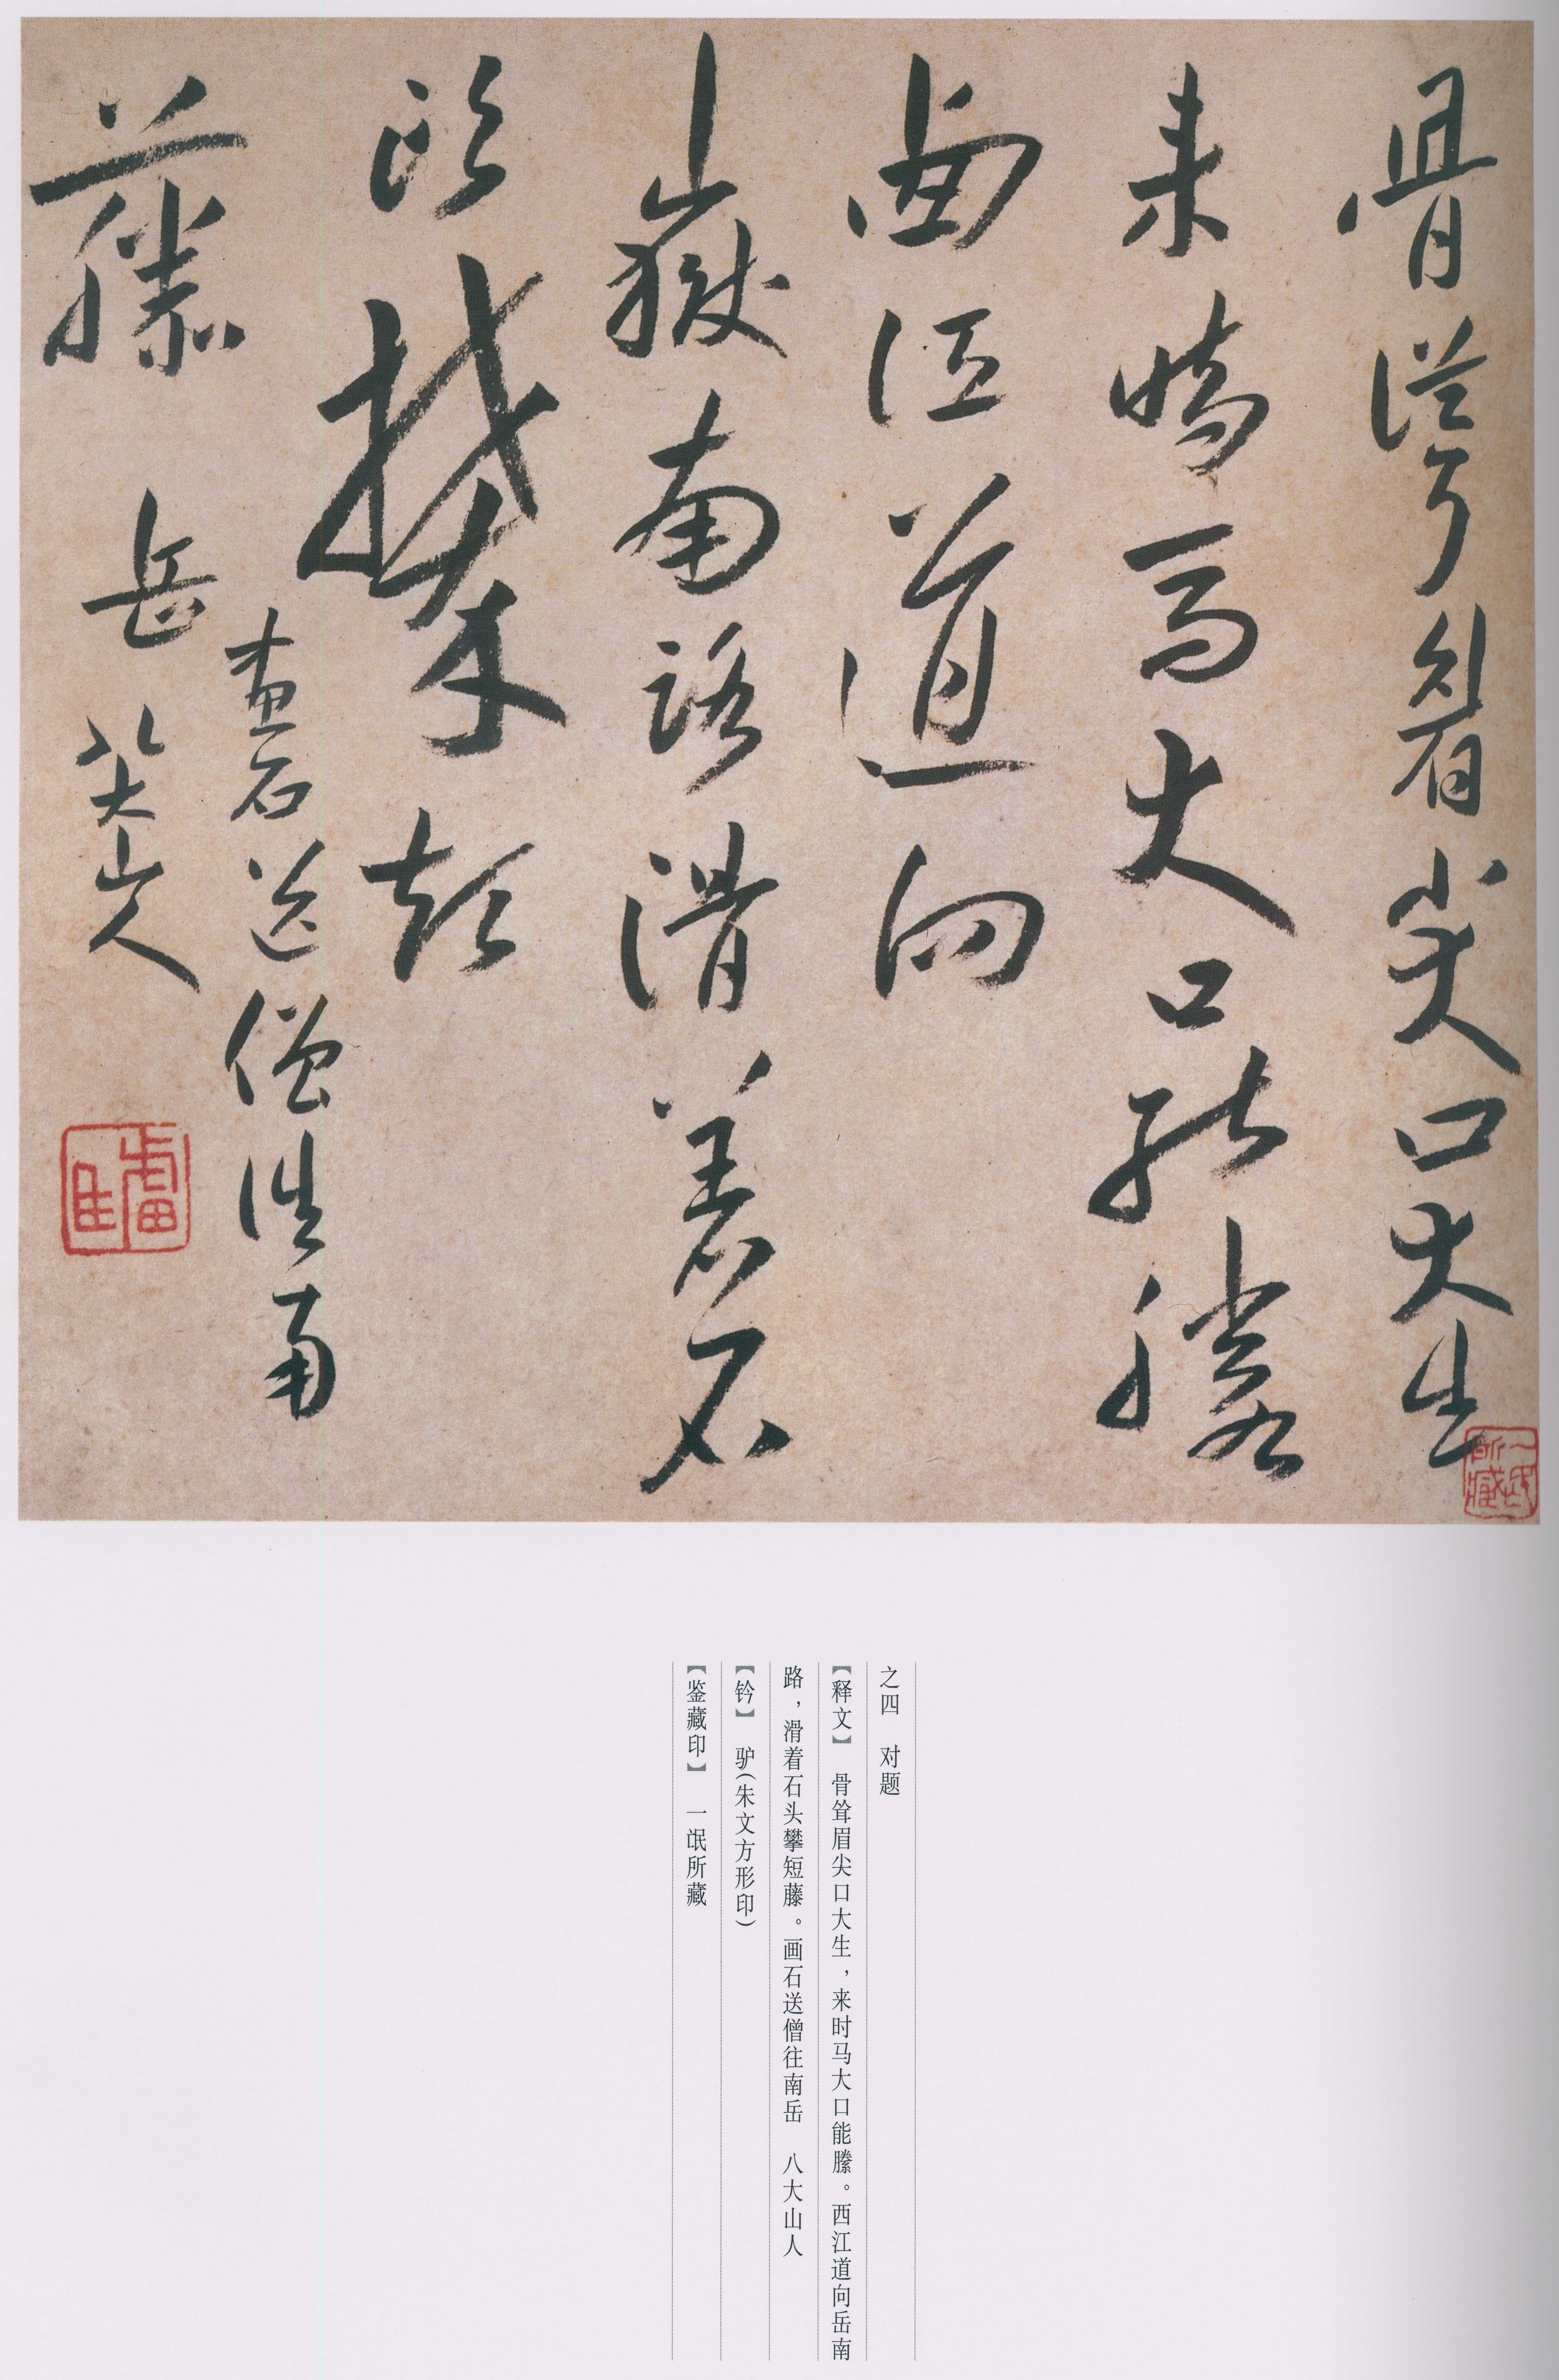 骨從耳眉尖口大生
来時馬大口能謄
西江道向
嶽南路滑着石
頭攀短
藤
畫石送僧往南
岳 八大山人
驢
一氓所藏
之四 对题
【释文】 骨耸眉尖口大生，来时马大口能謄。西江道向岳南
路，滑着石头攀短藤。画石送僧往南岳 八大山人
【钤】 驴(朱文方形印)
【鉴藏印】 一氓所藏